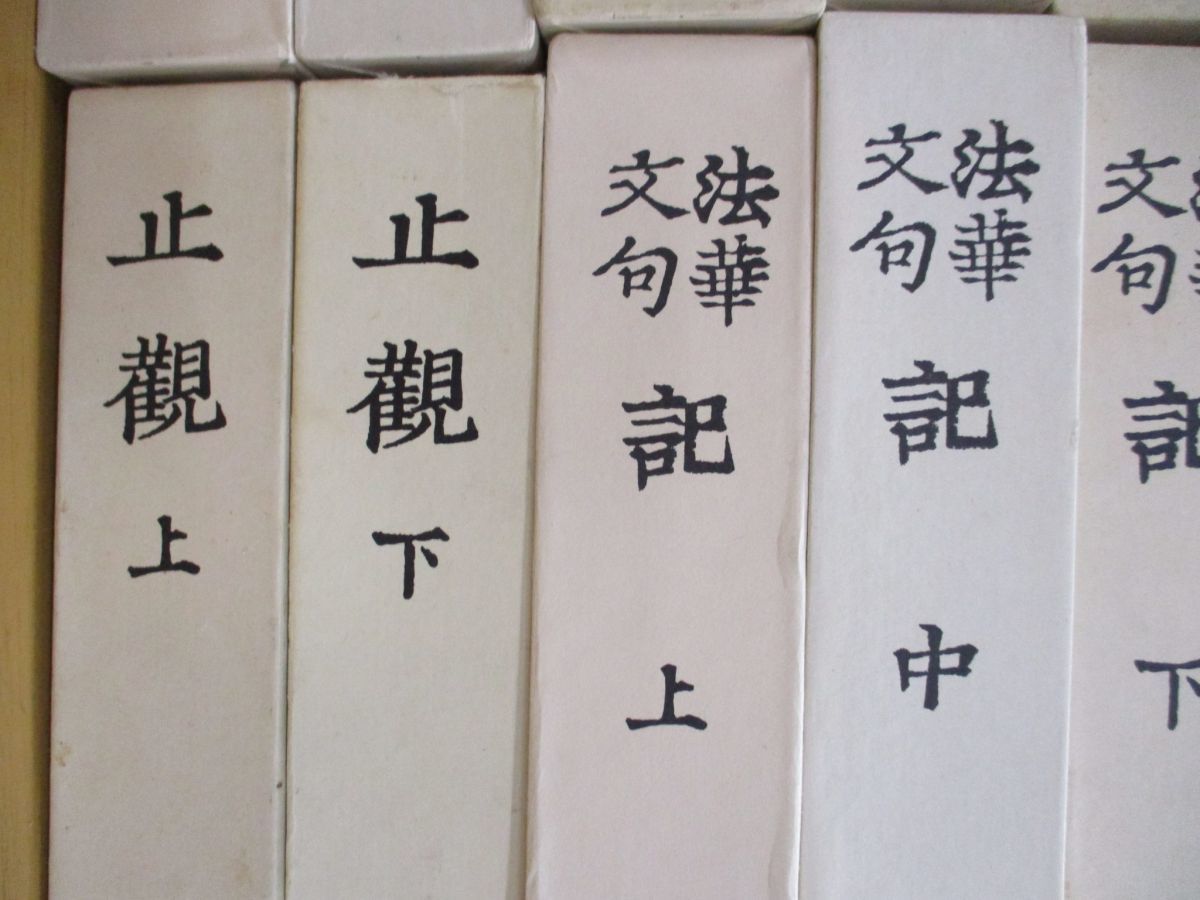 止觀 上
止觀 下
法華文句記 上
法華文句記 中
文句記 下